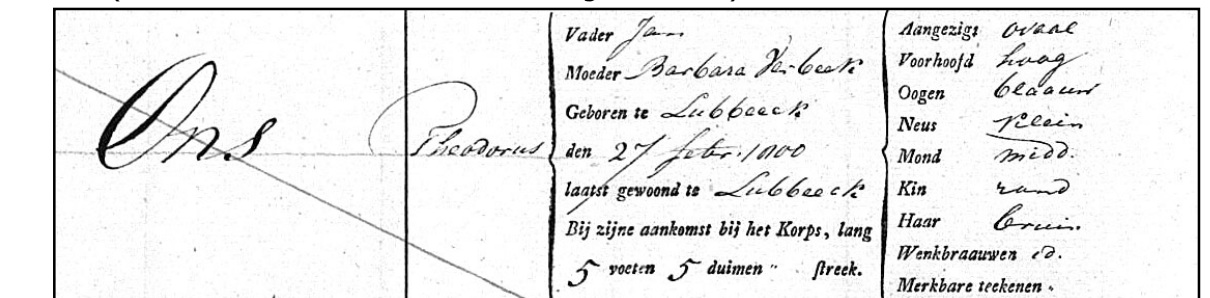 Ons
Theodorus
Vader Jan
Moeder Barbara Verbeeck
Geboren te Lubbeeck
den 27 febr. 1800
laatst gewoond te Lubbeeck
Bij zijne aankomst bij het Korps, lang
5 voeten 5 duimen " streek.
Aangezigt ovaal
Voorhoofd hoog
Oogen blaauw
Neus klein
Mond midd.
Kin rond
Haar bruin.
Wenkbraauwen id.
Merkbare teekenen .